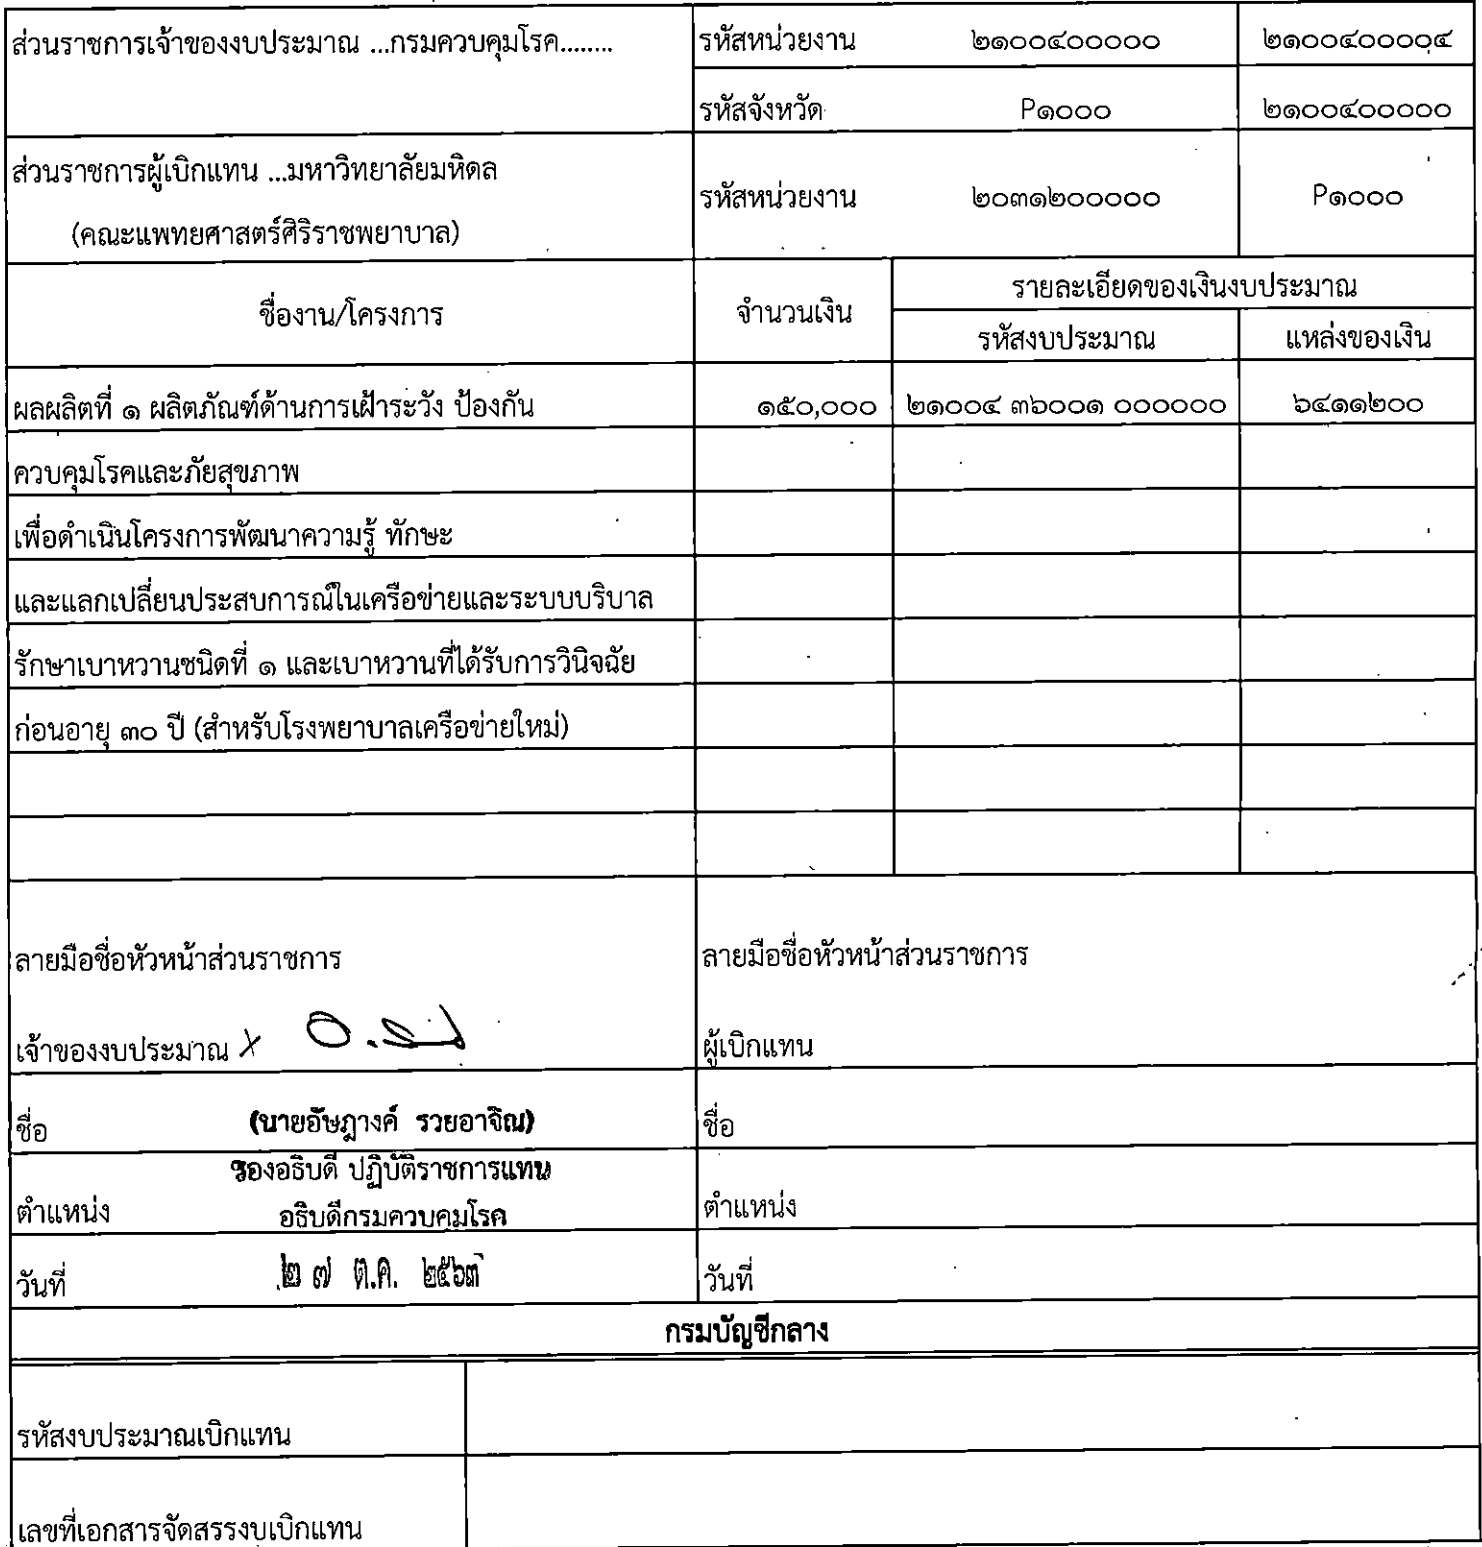 ส่วนราชการเจ้าของงบประมาณ ...กรมควบคุมโรค........ รหัสหน่วยงาน ๒๑๐๐๔๐๐๐๐๐ ๒๑๐๐๔๐๐๐๐๔
รหัสจังหวัด P๑๐๐๐ ๒๑๐๐๔๐๐๐๐๐
ส่วนราชการผู้เบิกแทน ...มหาวิทยาลัยมหิดล
(คณะแพทยศาสตร์ศิริราชพยาบาล)
รหัสหน่วยงาน ๒๐๓๑๒๐๐๐๐๐ P๑๐๐๐
ชื่องาน/โครงการ จำนวนเงิน รายละเอียดของเงินงบประมาณ
รหัสงบประมาณ แหล่งของเงิน
ผลผลิตที่ ๑ ผลิตภัณฑ์ด้านการเฝ้าระวัง ป้องกัน ๑๕๐,๐๐๐ ๒๑๐๐๔ ๓๖๐๐๑ ๐๐๐๐๐๐ ๖๔๑๑๒๐๐
ควบคุมโรคและภัยสุขภาพ
เพื่อดำเนินโครงการพัฒนาความรู้ ทักษะ
และแลกเปลี่ยนประสบการณ์ในเครือข่ายและระบบบริบาล
รักษาเบาหวานชนิดที่ ๑ และเบาหวานที่ได้รับการวินิจฉัย
ก่อนอายุ ๓๐ ปี (สำหรับโรงพยาบาลเครือข่ายใหม่)
ลายมือชื่อหัวหน้าส่วนราชการ ลายมือชื่อหัวหน้าส่วนราชการ
เจ้าของงบประมาณ X ผู้เบิกแทน
ชื่อ (นายอัษฎางค์ รวยอาจิณ) ชื่อ
รองอธิบดี ปฏิบัติราชการแทน
ตำแหน่ง อธิบดีกรมควบคุมโรค ตำแหน่ง
วันที่ ๒๗ ต.ค. ๒๕๖๓ วันที่
กรมบัญชีกลาง
รหัสงบประมาณเบิกแทน
เลขที่เอกสารจัดสรรงบเบิกแทน